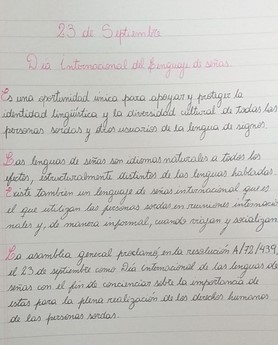 23 de Septiembre
Día Internacional del Lenguaje de señas
Es una oportunidad única para apoyar y proteger la
identidad lingüística y la diversidad cultural de todas las
personas sordas y otros usuarios de la lengua de signos.
Las lenguas de señas son idiomas naturales a todos los
efectos, estructuralmente distintos de las lenguas habladas.
Existe tambien un lenguaje de señas internacional que es
el que utilizan las personas sordas en reuniones internacio
nales y, de manera informal, cuando viajan y socializan
La asamblia general proclamó, en la resolución A/72/439,
el 23 de septiembre como Día internacional de las lenguas de
señas con el fin de concienciar sobre la importancia de
estas para la plena realización de los derechos humanos
de las personas sordas.